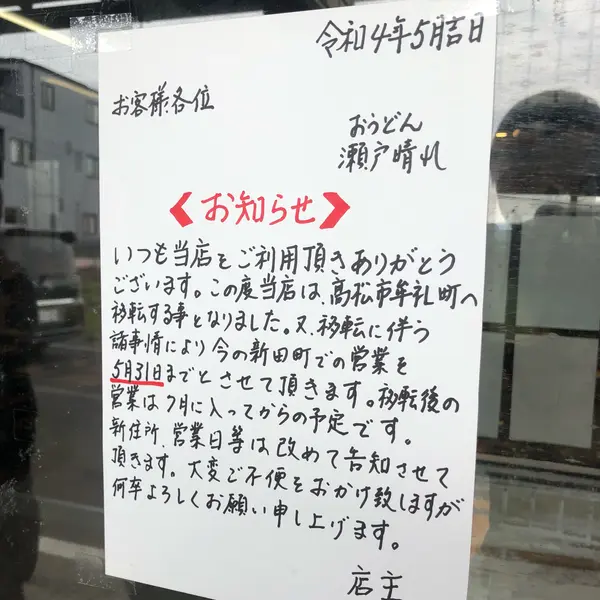 令和4年5月吉日
お客様各位
おうどん
瀬戸晴れ
《お知らせ》
いつも当店をご利用頂きありがとう
ございます。この度当店は、高松市牟礼町へ
移転する事となりました。又、移転に伴う
諸事情により今の新田町での営業を
5月31日までとさせて頂きます。移転後の
営業は7月に入ってからの予定です。
新住所、営業日等は改めて告知させて
頂きます。大変ご不便をおかけ致しますが
何卒よろしくお願い申し上げます。
店主